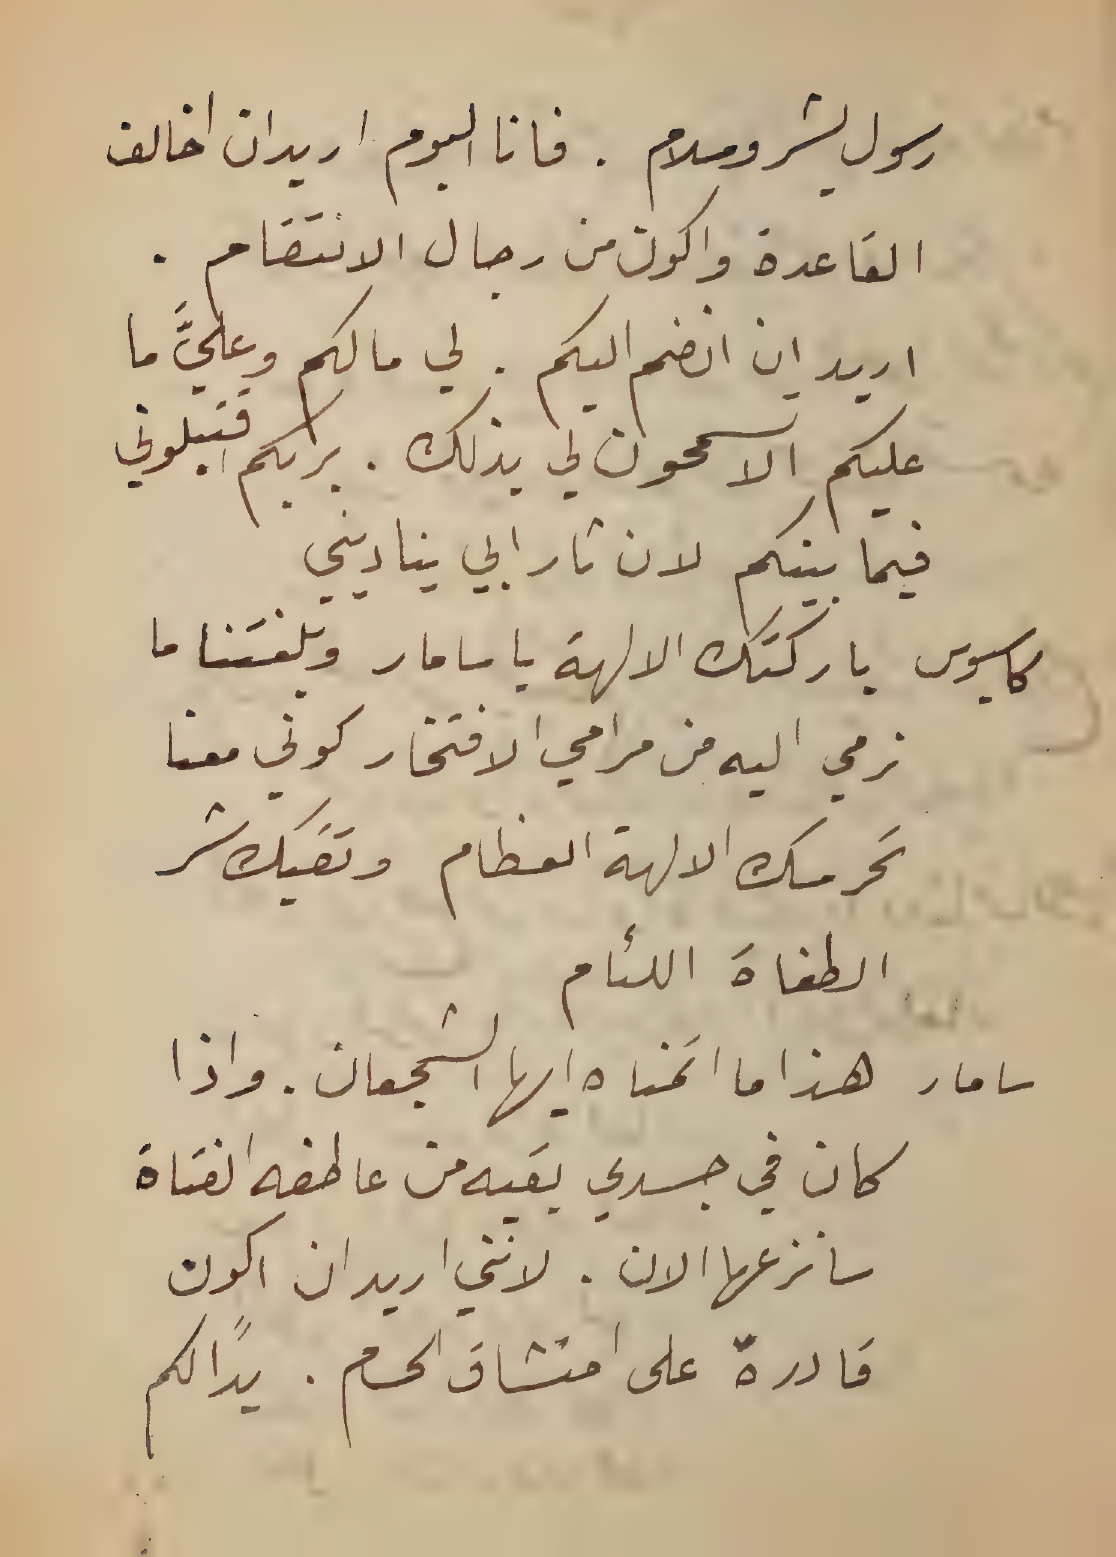 رسول بشر وسلام . فانا اليوم اريد ان اخالف
القاعدة واكون من رجال الانتقام .
اريد ان انضم اليكم . لي مالكم وعليَّ ما
عليكم الا تسمحون لي بذلك . بربكم اقبلوني
فيما بينكم لان ثار ابي يناديني
كاسيوس باركتك الالهة يا سامار وبلغتنا ما
نرمي اليه من مرامي الافتخار كوني معنا
تحرسك الالهة العظام وتقيك شر
الطغاة اللئام
سامار هذا ما اتمناه ايها الشجعان . واذا
كان في جسدي بقيه من عاطفه الفتاة
سانزعها الان . لانني اريد ان اكون
قادرة على امتشاق الحسام . يداً لكم